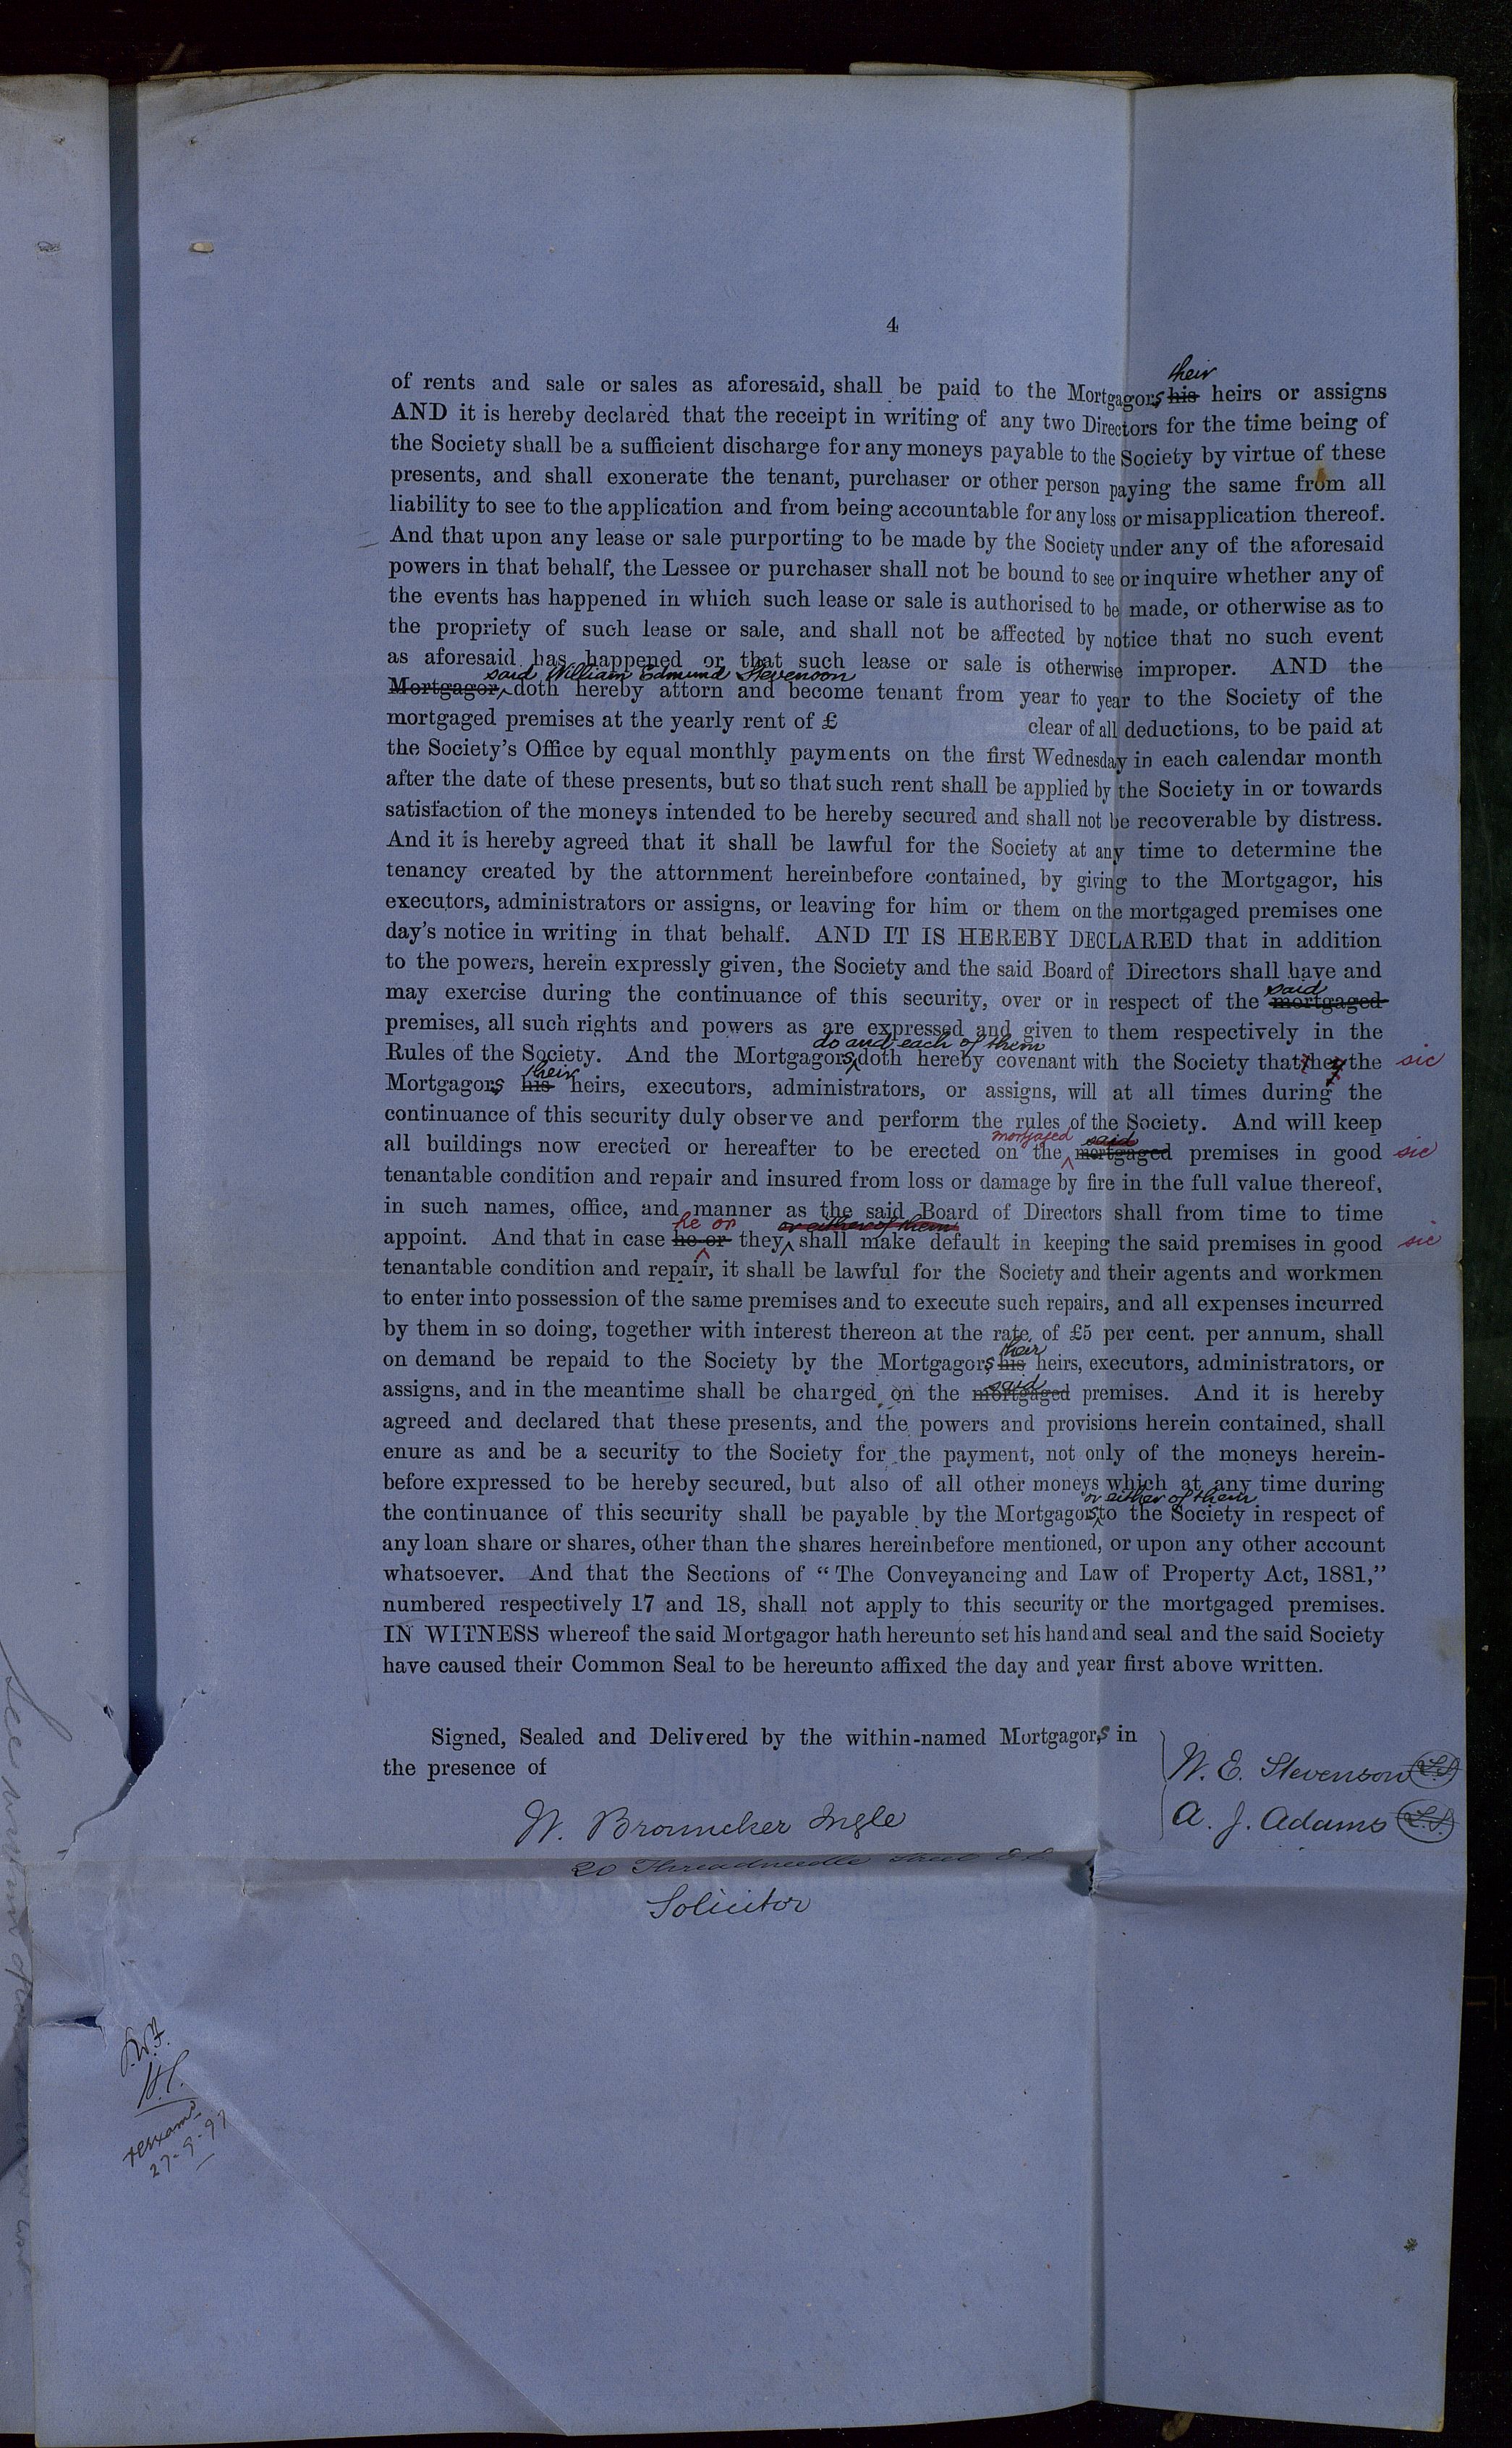 4
of rents and sale or sales as aforesaid, shall be paid to the Mortgagors his their heirs or assigns
AND it is hereby declared that the receipt in writing of any two Directors for the time being of
the Society shall be a sufficient discharge for any moneys payable to the Society by virtue of these
presents, and shall exonerate the tenant, purchaser or other person paying the same from all
liability to see to the application and from being accountable for any loss or misapplication thereof.
And that upon any lease or sale purporting to be made by the Society under any of the aforesaid
powers in that behalf, the Lessee or purchaser shall not be bound to see or inquire whether any of
the events has happened in which such lease or sale is authorised to be made, or otherwise as to
the propriety of such lease or sale, and shall not be affected by notice that no such event
as aforesaid has happened or that such lease or sale is otherwise improper. AND the
Mortgagor said William Edmund Stevenson doth hereby attorn and become tenant from year to year to the Society of the
mortgaged premises at the yearly rent of £ clear of all deductions, to be paid at
the Society's Office by equal monthly payments on the first Wednesday in each calendar month
after the date of these presents, but so that such rent shall be applied by the Society in or towards
satisfaction of the moneys intended to be hereby secured and shall not be recoverable by distress.
And it is hereby agreed that it shall be lawful for the Society at any time to determine the
tenancy created by the attornment hereinbefore contained, by giving to the Mortgagor, his
executors, administrators or assigns, or leaving for him or them on the mortgaged premises one
day's notice in writing in that behalf. AND IT IS HEREBY DECLARED that in addition
to the powers, herein expressly given, the Society and the said Board of Directors shall have and
may exercise during the continuance of this security, over or in respect of the mortgaged said
premises, all such rights and powers as are expressed and given to them respectively in the
Rules of the Society. And the Mortgagors do and each of them doth hereby covenant with the Society that they the sic
Mortgagors his their heirs, executors, administrators, or assigns, will at all times during the
continuance of this security duly observe and perform the rules of the Society. And will keep
all buildings now erected or hereafter to be erected on the mortgaged mortgaged said premises in good sic
tenantable condition and repair and insured from loss or damage by fire in the full value thereof,
in such names, office, and manner as the said Board of Directors shall from time to time
appoint. And that in case he or he or they or either of them shall make default in keeping the said premises in good sic
tenantable condition and repair, it shall be lawful for the Society and their agents and workmen
to enter into possession of the same premises and to execute such repairs, and all expenses incurred
by them in so doing, together with interest thereon at the rate of £5 per cent. per annum, shall
on demand be repaid to the Society by the Mortgagors his their heirs, executors, administrators, or
assigns, and in the meantime shall be charged on the mortgaged said premises. And it is hereby
agreed and declared that these presents, and the powers and provisions herein contained, shall
enure as and be a security to the Society for the payment, not only of the moneys herein-
before expressed to be hereby secured, but also of all other moneys which at any time during
the continuance of this security shall be payable by the Mortgagors or either of them to the Society in respect of
any loan share or shares, other than the shares hereinbefore mentioned, or upon any other account
whatsoever. And that the Sections of “The Conveyancing and Law of Property Act, 1881,”
numbered respectively 17 and 18, shall not apply to this security or the mortgaged premises.
IN WITNESS whereof the said Mortgagor hath hereunto set his hand and seal and the said Society
have caused their Common Seal to be hereunto affixed the day and year first above written.
Signed, Sealed and Delivered by the within-named Mortgagors in
the presence of
W. E. Stevenson L.S.
A. J. Adams L.S.
W. Brouncker Ingle
20 Threadneedle Street E C
Solicitor
27-9-97